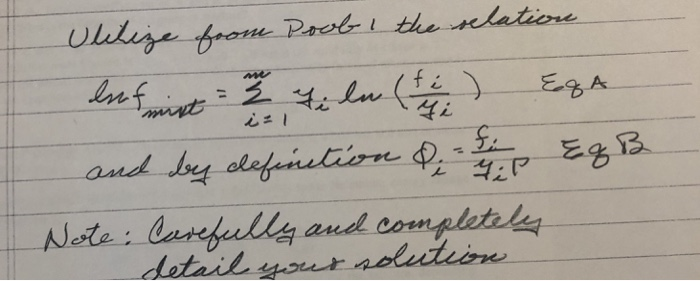 Utilize from Prob 1 the relation
ln f mixt = m Σ i=1 yi ln (fi/yi) Eq A
and by definition Φi = fi/yiP Eq B
Note: Carefully and completely
detail your solution